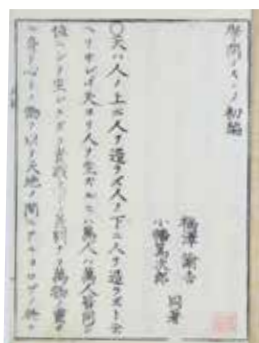 學問ノスヽメ 初編
福澤諭吉
小幡篤次郎
同著
○天ハ人ノ上ニ人ヲ造ラズ人ノ下ニ人ヲ造ラズト云
ヘリサレバ天ヨリ人ヲ生ズルニハ萬人ハ萬人皆同ジ
位ニシテ生レナガラ貴賤上下ノ差別ナク萬物ノ靈タ
ル身ト心トノ働ヲ以テ天地ノ間ニアルヨロヅノ物ヲ